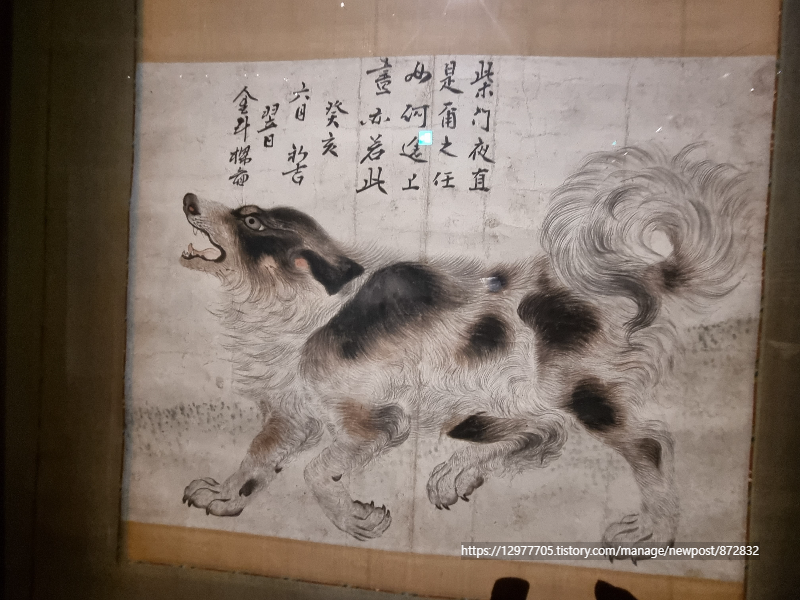 柴門夜直
是爾之任
如何途上
晝亦若此
癸亥
六月初吉
翌日
金斗樑
https://12977705.tistory.com/manage/newpost/872832